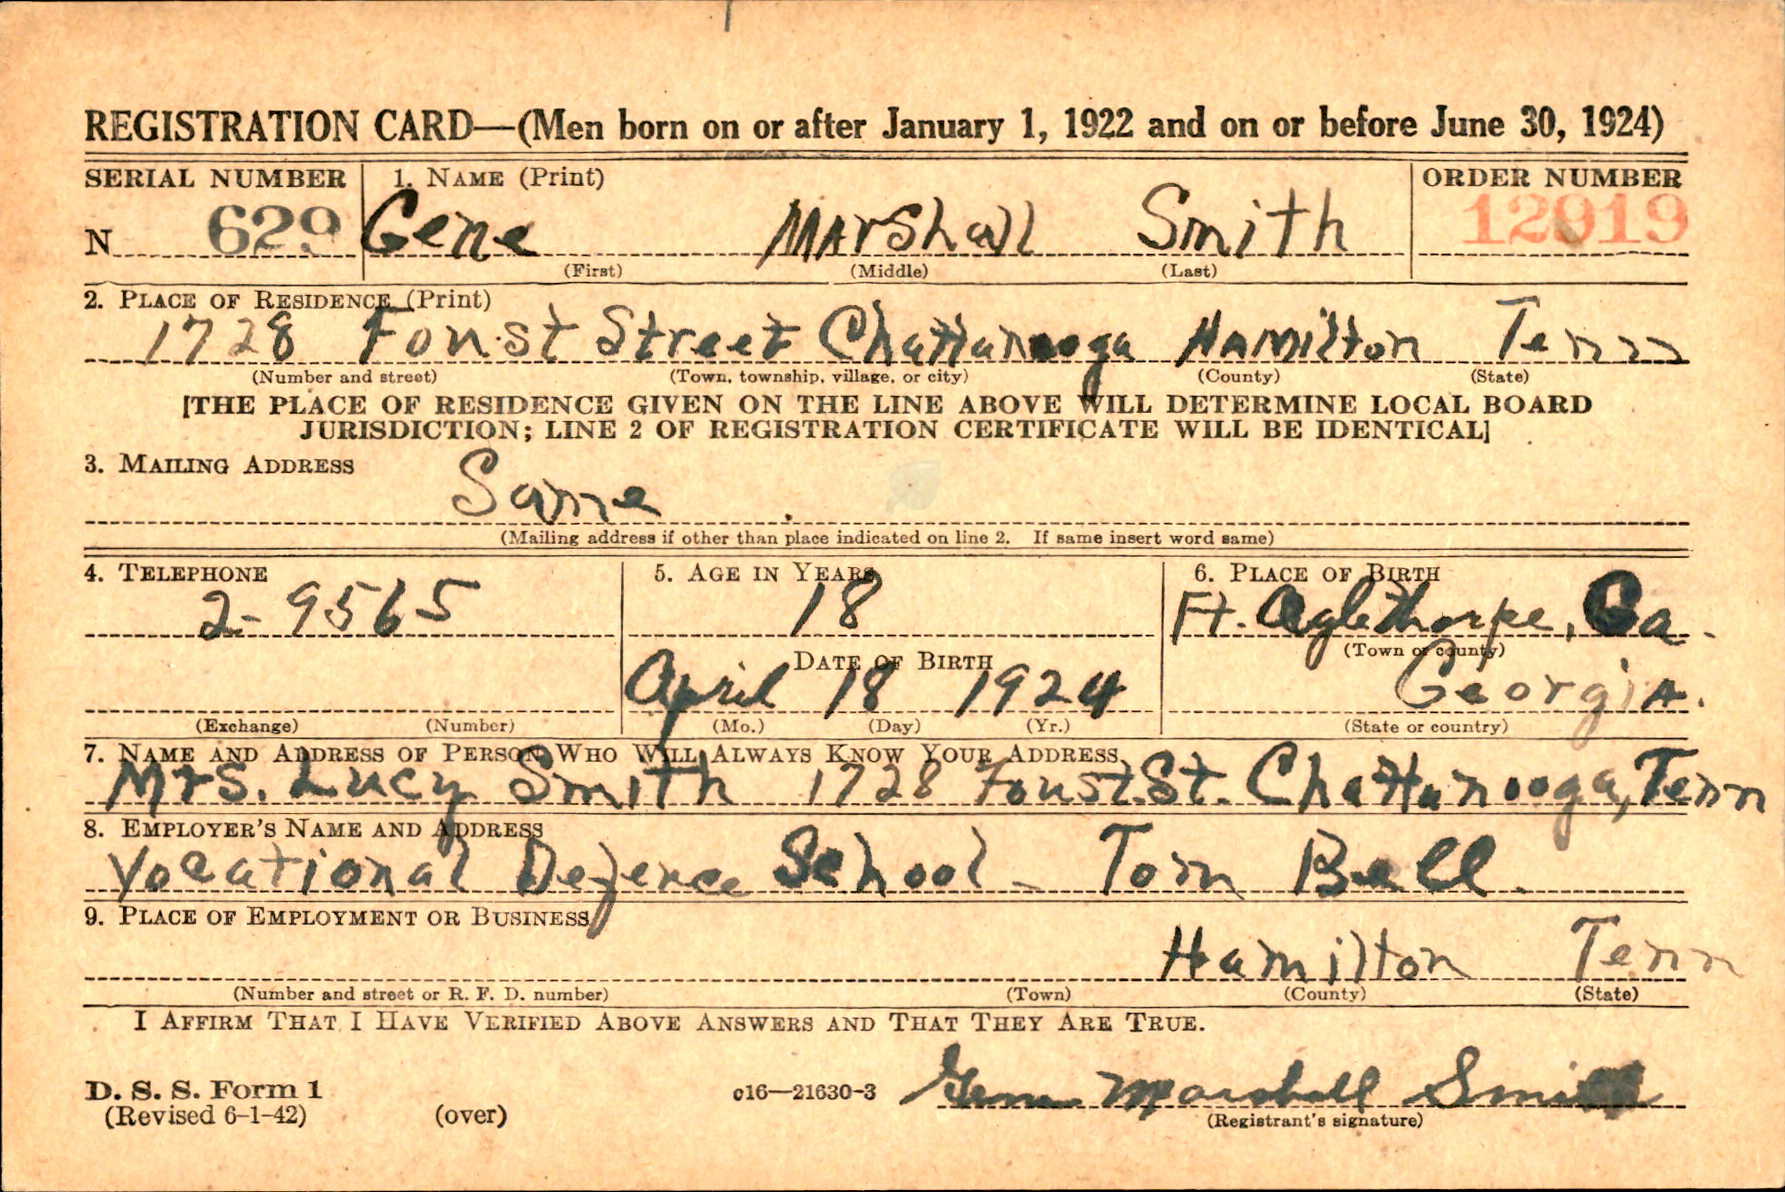 REGISTRATION CARD—(Men born on or after January 1, 1922 and on or before June 30, 1924)
SERIAL NUMBER 1. NAME (Print) ORDER NUMBER
N 629 Gene Marshall Smith 12919
(First) (Middle) (Last)
2. PLACE OF RESIDENCE (Print)
1728 Foust Street Chattanooga Hamilton Tenn
(Number and street) (Town, township, village, or city) (County) (State)
[THE PLACE OF RESIDENCE GIVEN ON THE LINE ABOVE WILL DETERMINE LOCAL BOARD
JURISDICTION; LINE 2 OF REGISTRATION CERTIFICATE WILL BE IDENTICAL]
3. MAILING ADDRESS
Same
(Mailing address if other than place indicated on line 2. If same insert word same)
4. TELEPHONE 5. AGE IN YEARS 6. PLACE OF BIRTH
2-9565 18 Ft. Oglethorpe, Ga.
(Town or county)
DATE OF BIRTH
April 18 1924 Georgia.
(Exchange) (Number) (Mo.) (Day) (Yr.) (State or country)
7. NAME AND ADDRESS OF PERSON WHO WILL ALWAYS KNOW YOUR ADDRESS
Mrs. Lucy Smith 1728 Foust St. Chattanooga, Tenn
8. EMPLOYER'S NAME AND ADDRESS
Vocational Defence School - Tom Bell.
9. PLACE OF EMPLOYMENT OR BUSINESS
Hamilton Tenn
(Number and street or R. F. D. number) (Town) (County) (State)
I AFFIRM THAT I HAVE VERIFIED ABOVE ANSWERS AND THAT THEY ARE TRUE.
D. S. S. Form 1 c16—21630-3 Gene Marshall Smith
(Revised 6-1-42) (over) (Registrant's signature)